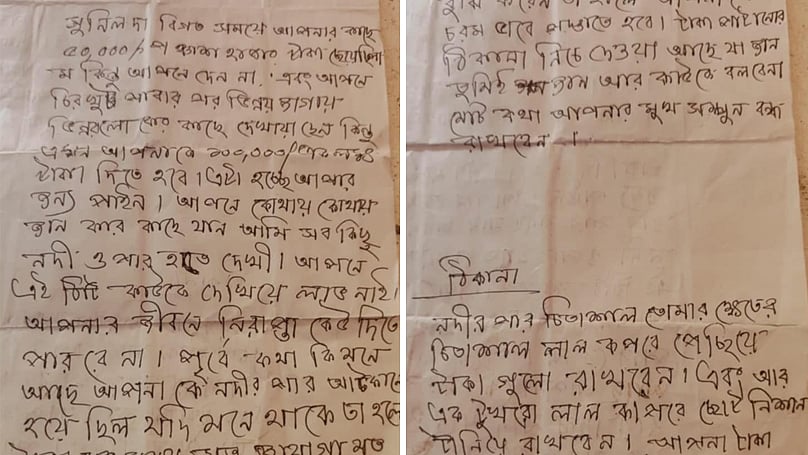 সুনিল দা বিগত সময়ে আপনার কাছে
৫০,০০০/- হাজার টাকা
কিন্তু আপনে দেন না। এবং আপনে
চিঠি পাবার পর ভিন্নয় জাগায়
কাছে কিন্তু
এখন আপনাকে ১০০,০০০/-
টাকা দিতে হবে। এটা হচ্ছে আপনার
জন্য ফাইন। আপনে কোথায় কোথায়
জান কার কাছে যান আমি সব কিছু
নদী ও পার হতে দেখী। আপনে
এই চিটি কাউকে দেখিয়ে লাভ নাই।
আপনার জীবনে নিরাপ্তা কেউ দিতে
পারবে না। পূর্বে কথা কি মনে
আছে আপনা কে নদীর পার আটকানো
হয়ে ছিল যদি মনে থাকে তা হলে
মত
চরম ভাবে পস্তাতে হবে। টাকা পাটানোর
ঠিকানা নিচে দেওয়া আছে যা জান
তুমিই জান আর কাউকে বলবেনা
মোট কথা আপনার মুখ সম্পুন বন্ধ
রাখবেন।
ঠিকানা
নদীর পার চিতাশাল তোমার ক্ষেতের
চিতাশাল লাল কাপরে পেচিয়ে
টাকা গুলো রাখবেন। এবং আর
এক টুখরো লাল কাপরে ছোট নিশান
টানিয়ে রাখবেন। আপনা টাকা